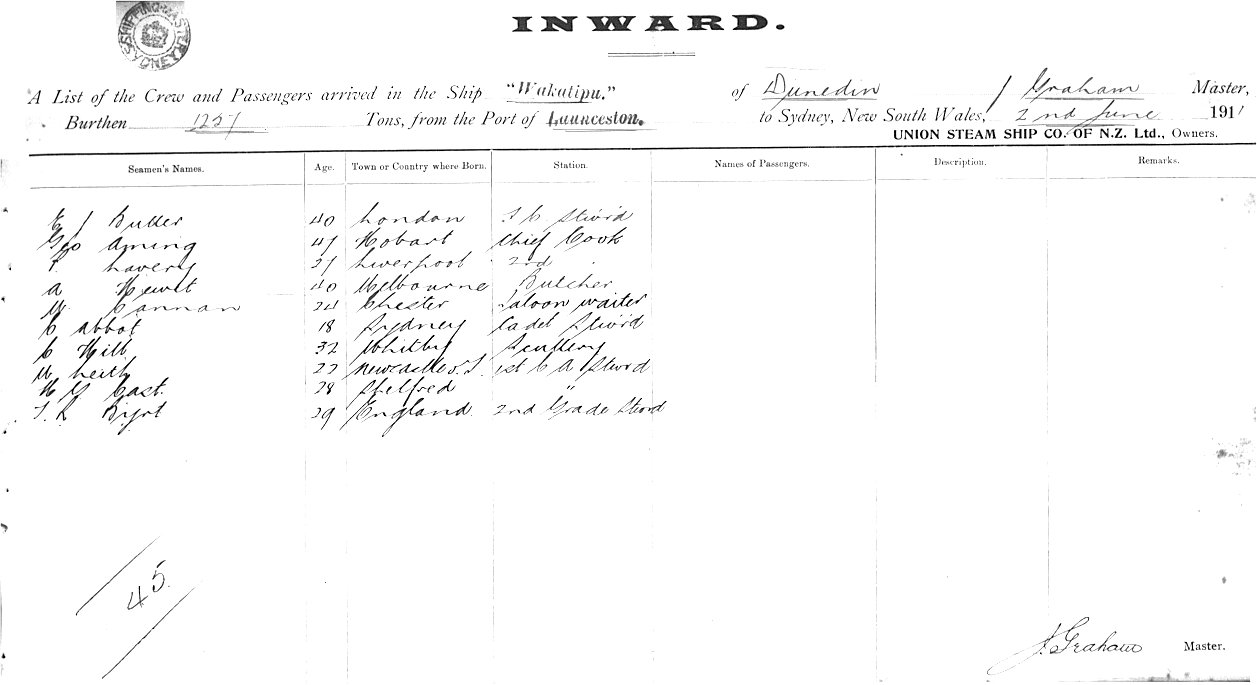 SHIPPING MASTER SYDNEY
INWARD.
A List of the Crew and Passengers arrived in the Ship "Wakatipu." of Dunedin J Graham Master,
Burthen 1257 Tons, from the Port of Launceston. to Sydney, New South Wales, 2nd June 1911
UNION STEAM SHIP CO. OF N.Z. Ltd., Owners.
Seamen's Names. Age. Town or Country where Born. Station. Names of Passengers. Description. Remarks.
E J Butler 40 London Stwd
Geo Aming 47 Hobart Chief Cook
Lavery Liverpool 2nd "
A Hewit 40 Melbourne Butcher
W Cannan 24 Chester Saloon waiter
C Abbot 18 Sydney Cadet Stwd
C Hill 32 Whitby Scullery
W Leith Newcastle 1st C A Stwd
H G Cast. 28 Shelfred "
29 England 2nd Grade Stwd
45
J. Graham Master.